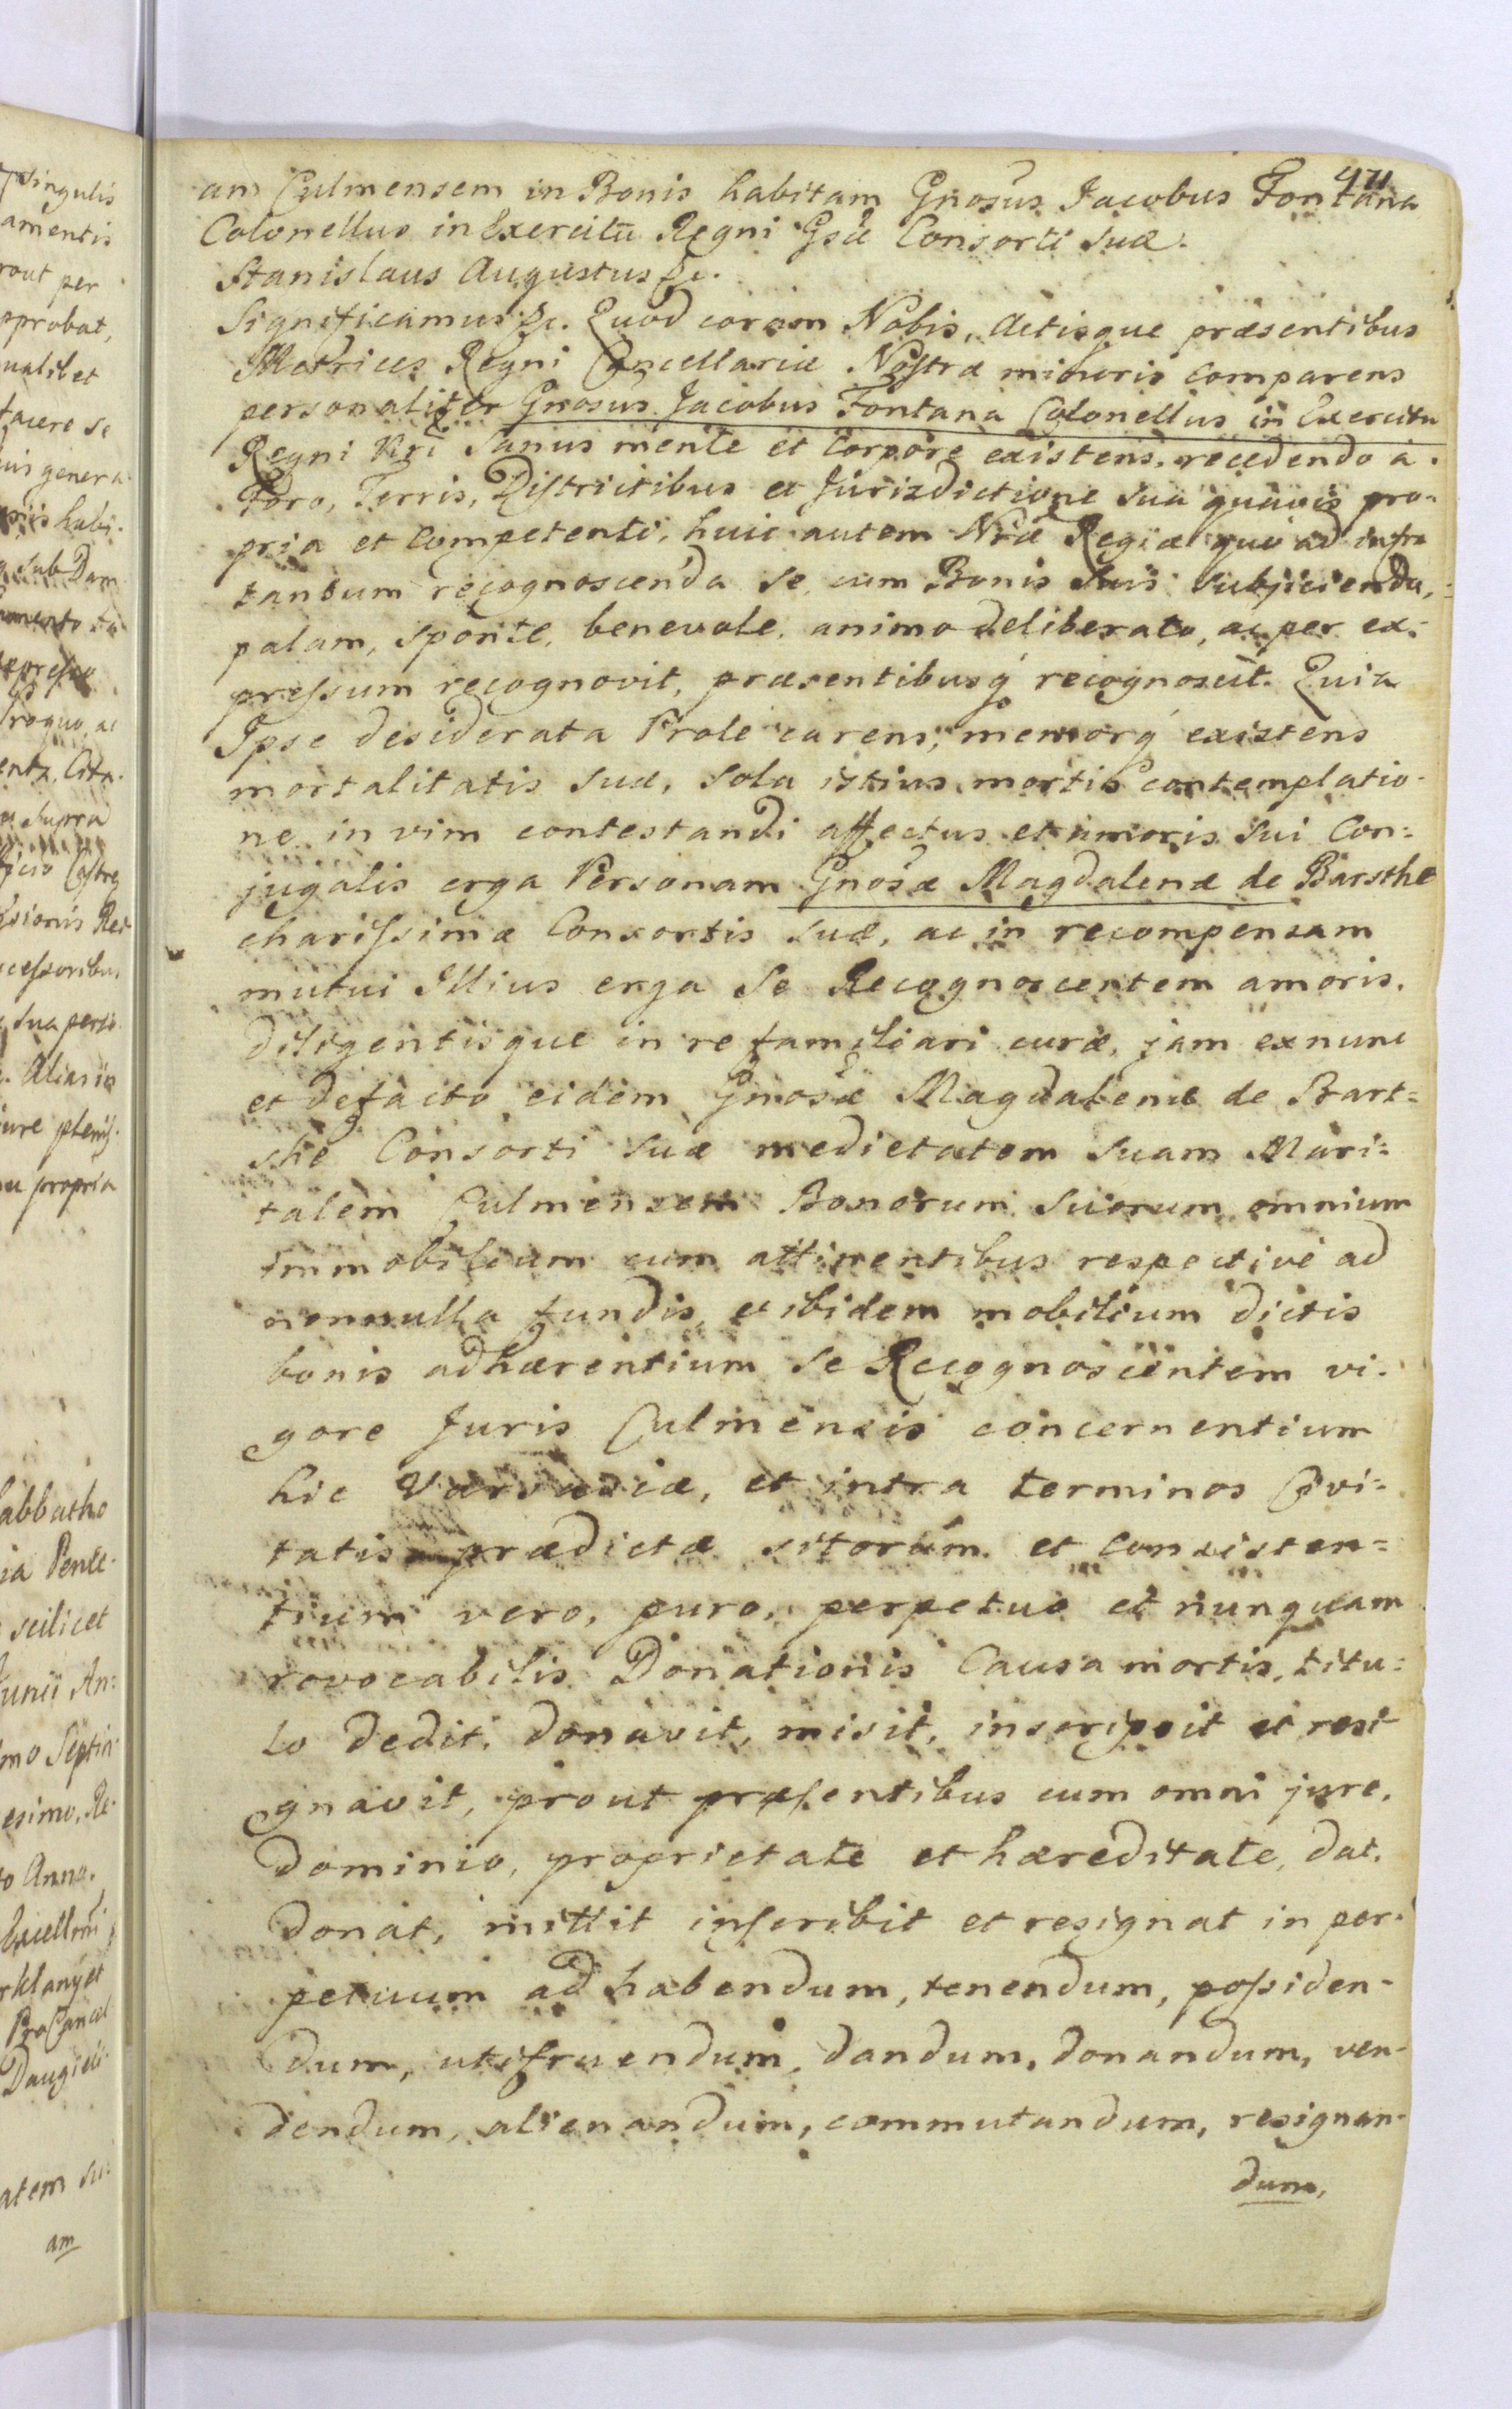 471
am Culmensem in Bonis habitam Gnosus Jacobus Fontana
Colonellus in Exercitu Regni Gsae Consorti suae.
Stanislaus Augustus &c.
Significamus &c. Quod coram Nobis, Actisque praesentibus
Metrices Regni Cancellariae Nostrae minoris comparens
personaliter Gnosus Jacobus Fontana Colonellus in Exercitu
Regni Nri Sanus mente et Corpore existens, recedendo à
Foro, Terris, Districtibus et Jurisdictione sua quavis pro-
pria et competenti, huic autem Nrae Regiae quo ad infra
tantum recognoscenda se cum Bonis suis subjiciendo,
palam, sponte, benevole, animo deliberato, ac per ex-
pressum recognovit, praesentibusq recognoscit. Quia
Ipse desiderata Prole carens, memorq existens
mortalitatis suae, sola istius mortis contemplatio-
ne in vim contestandi affectus et amoris sui Con-
jugalis erga Personam Gnosae Magdalenae de Barsthe
charissimae Consortis suae, ac in recompensam
mutui Illius erga se Recognoscentem amoris,
diligentisque in re familiari curae, jam ex nunc
et de facto eidem Gnosae Magdalenae de Bart-
she Consorti suae medietatem suam Mari-
talem Culmensem Bonorum suorum omnium
immobilium cum attinentibus respectivè ad
nonnulla fundis, et ibidem mobilium dictis
bonis adhaerentium se Recognoscentem vi-
gore Juris Culmensis concernentium
hic Varsaviae, et intra terminos Civi-
tatis praedictae sitorum et consisten-
tium vero, puro, perpetuo et nunquam
revocabilis Donationis Causa mortis, titu-
lo dedit, donavit, misit, inscripsit et resi-
gnavit, prout praesentibus cum omni jure,
Dominio, proprietate et haereditate, dat,
donat, mittit inscribit et resignat in per-
petuum ad habendum, tenendum, possiden-
dum, utifruendum, dandum, donandum, ven-
dendum, alienandum, commutandum, resignan-
dum,